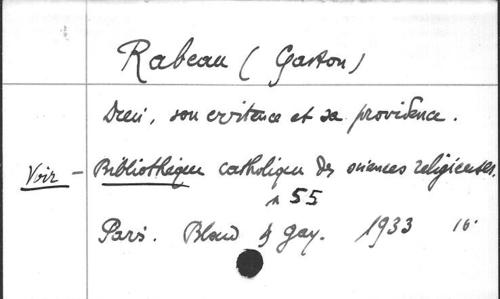 Rabeau (Gaston)
Dieu, son existence et sa providence.
Voir - Bibliothèque catholique des sciences religieuses.
n 55
Paris. Bloud & Gay. 1933 16°